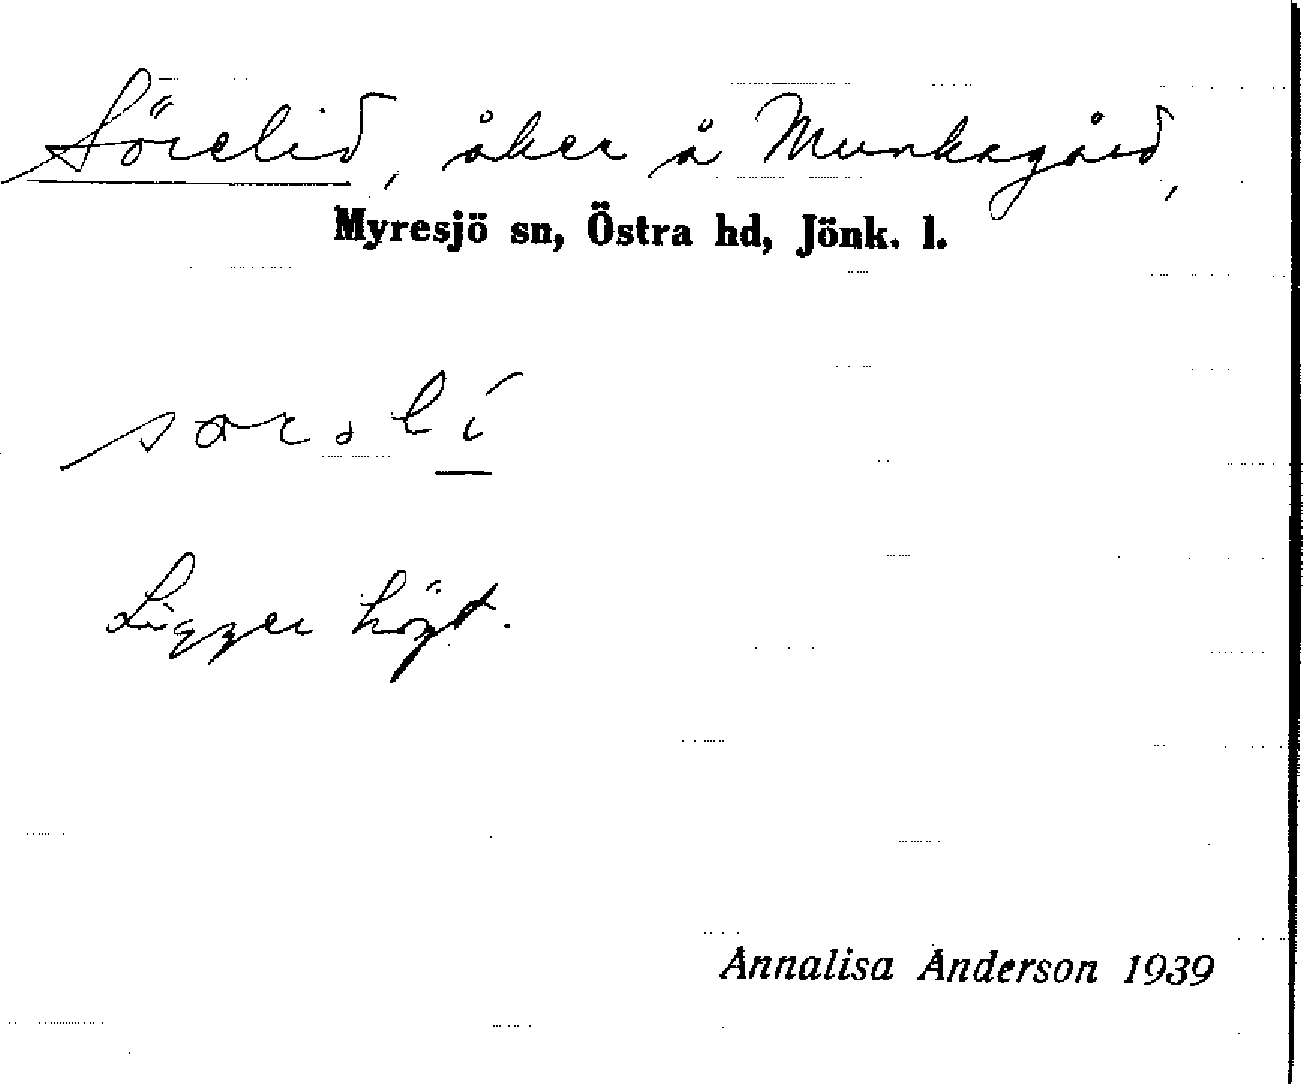 Sörelid, åker å Munkagård,
Myresjö sn, Östra hd, Jönk. l.
Ligger högt.
Annalisa Anderson 1939